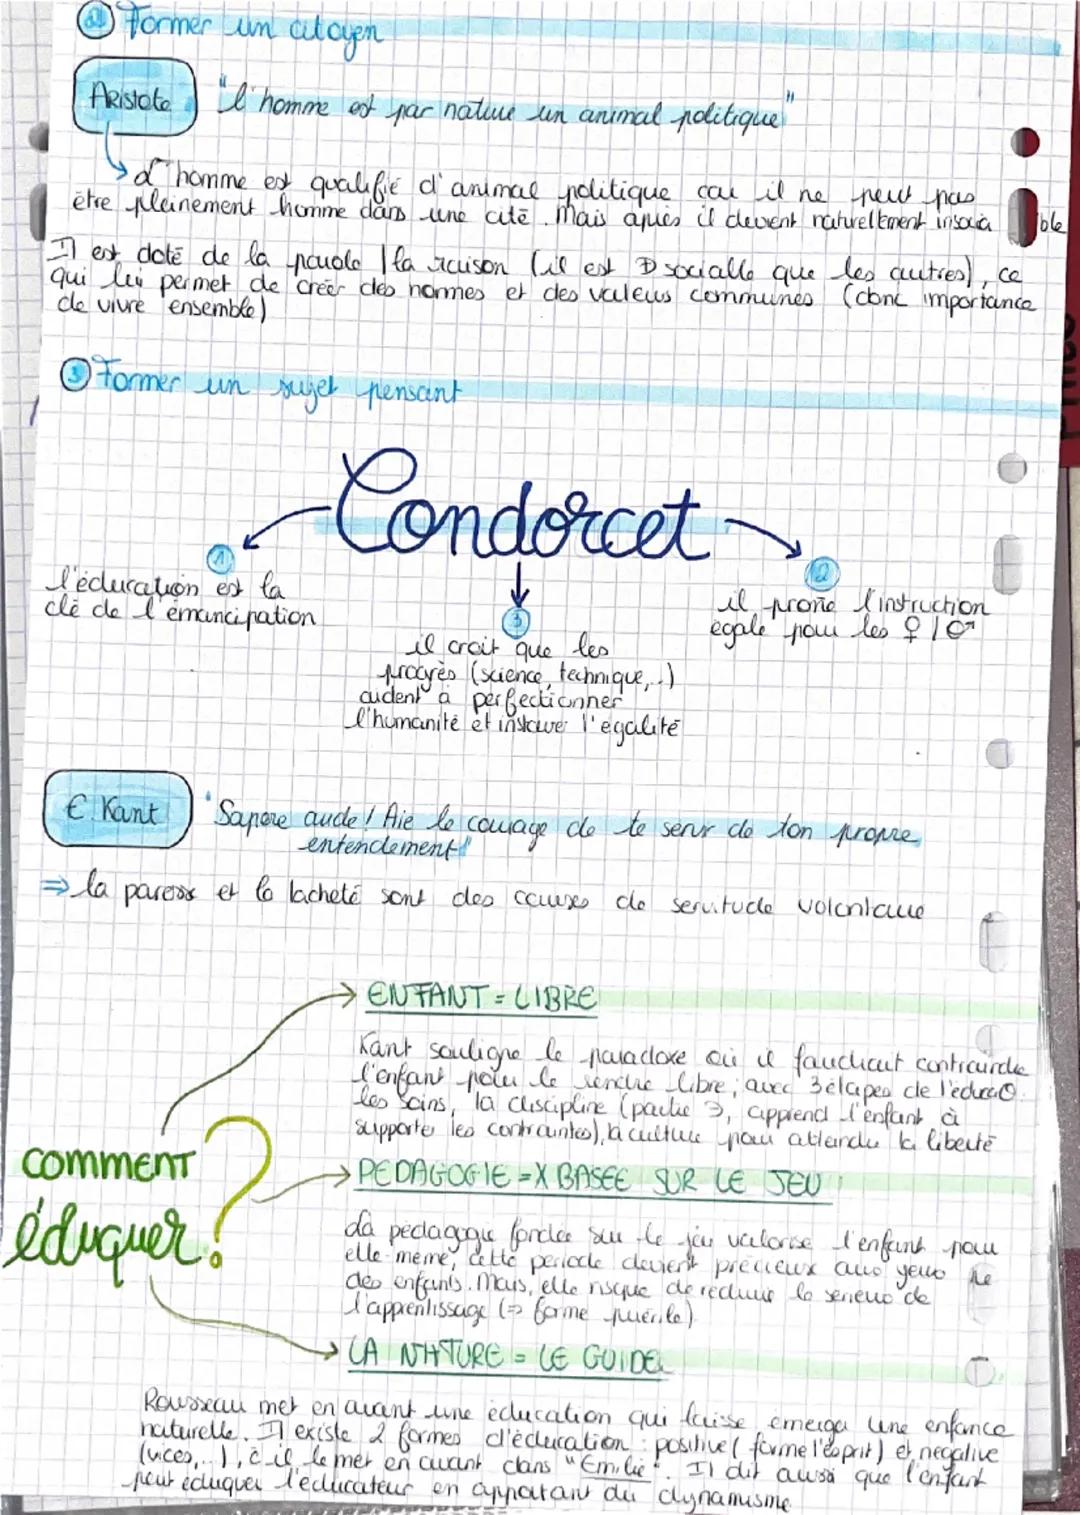 ② Former un citoyen
Aristote "l'homme est par nature un animal politique"
L'homme est qualifié d'animal politique car il ne peut pas
être pleinement homme dans une cité. Mais après il devient naturellement insocia ble
Il est doté de la parole / la raison (il est sociable que les autres), ce
qui lui permet de créer des normes et des valeurs communes (donc importance
de vivre ensemble)
③ Former un sujet pensant
Condorcet
①
l'éducation est la
clé de l'émancipation
②
il prône l'instruction
égale pour les ♀ / ♂
③
il croit que les
progrès (science, technique,..)
aident à perfectionner
l'humanité et instaurer l'égalité
E. Kant "Sapere aude! Aie le courage de te servir de ton propre
entendement"
⇒ la paresse et la lacheté sont des causes de servitude volontaire
comment
éduquer ?
ENFANT = LIBRE
Kant souligne le paradoxe où il faudrait contraindre
l'enfant pour le rendre libre; avec 3 étapes de l'éduca⊙:
les soins, la discipline (partie, apprend l'enfant à
supporter les contraintes), la culture pour atteindre la liberté
PEDAGOGIE = X BASEE SUR LE JEU
La pédagogie fondée sur le jeu valorise l'enfant pour
elle-même, cette période devient précieux aux yeux
des enfants. Mais, elle risque de réduire le sérieux de
l'apprentissage (⇒ forme puérile)
LA NATURE = LE GUIDE
Rousseau met en avant une éducation qui laisse émerger une enfance
naturelle. Il existe 2 formes d'éducation : positive (forme l'esprit) et négative
(vices,...), il le met en avant dans "Emilie". Il dit aussi que l'enfant
peut éduquer l'éducateur en apportant du dynamisme